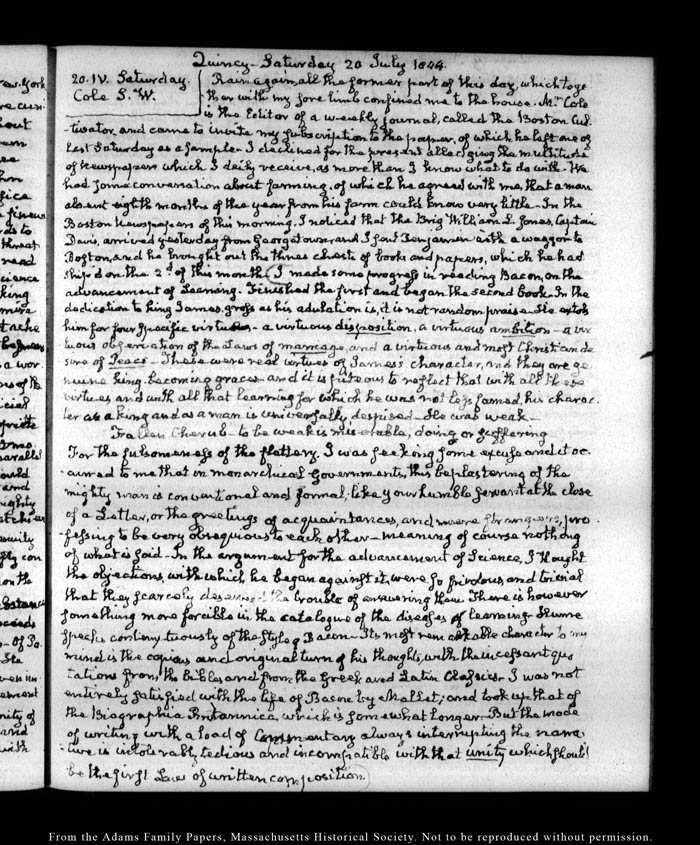 Quincy - Saturday 20 July 1844.
20. IV. Saturday.
Cole S. W.
Rain again, all the former part of this day, which toge
ther with my sore limb confined me to the house. Mr Cole
is the Editor of a weekly journal, called the Boston Cul-
-tivator, and came to invite my subscription to the paper, of which he left one of
last Saturday as a sample. I declined for the present alledging the multitude
of Newspapers which I daily receive, as more than I know what to do with. We
had some conversation about farming, of which he agreed with me, that a man
absent eight months of the year from his farm could know very little - In the
Boston newspapers of this morning, I noticed that the Brig William L. Jones, Captain
Davis, arrived yesterday from Georgetown, and I sent Benjamin with a waggon to
Boston, and he brought out the three chests of books and papers, which he had
ship'd on the 2d of this month. I made some progress in reading Bacon, on the
advancement of Learning. Finished the first and began the second book. In the
dedication to king James, gross as his adulation is, it is not random praise. He extols
him for four specific virtues - a virtuous disposition, a virtuous ambition - a vir
tuous observation of the Laws of marriage, and a virtuous and most Christian de
sire of Peace - These were real virtues of James's character, and they are ge
nuine king becoming graces - and it is piteous to reflect that with all these
virtues and with all that learning for which he was not less famed, his charac-
ter as a king and as a man is universally despised - He was weak -
Fallen Cherub - to be weak is miserable, doing or suffering
For the fulsomeness of the flattery, I was seeking some excuse and it oc-
curred to me that in monarchical Governments, this beplastering of the
mighty man is conventional and formal; like your humble servant at the close
of a Letter, or the greetings of acquaintances, and mere strangers, pro-
fessing to be very obsequious to each other - meaning of course nothing
of what is said. In the argument for the advancement of Science, I thought
the objections, with which he began against it, were so frivolous, and trivial
that they scarcely deserved the trouble of answering them. There is however
something more forcible in the catalogue of the diseases of learning. Hume
speaks contemptuously of the style of Bacon - Its most remarkable character to my
mind is the copious and original turn of his thoughts, with the incessant quo
tations from the bible and from the Greek and Latin Classics. I was not
entirely satisfied with the life of Bacon by Mallet; and took up that of
the Biographia Britannica, which is somewhat longer - But the mode
of writing with a load of Commentary always interrupting the narra-
tive is intolerably tedious and incompatible with that unity which should
be the first Law of written composition.
From the Adams Family Papers, Massachusetts Historical Society. Not to be reproduced without permission.